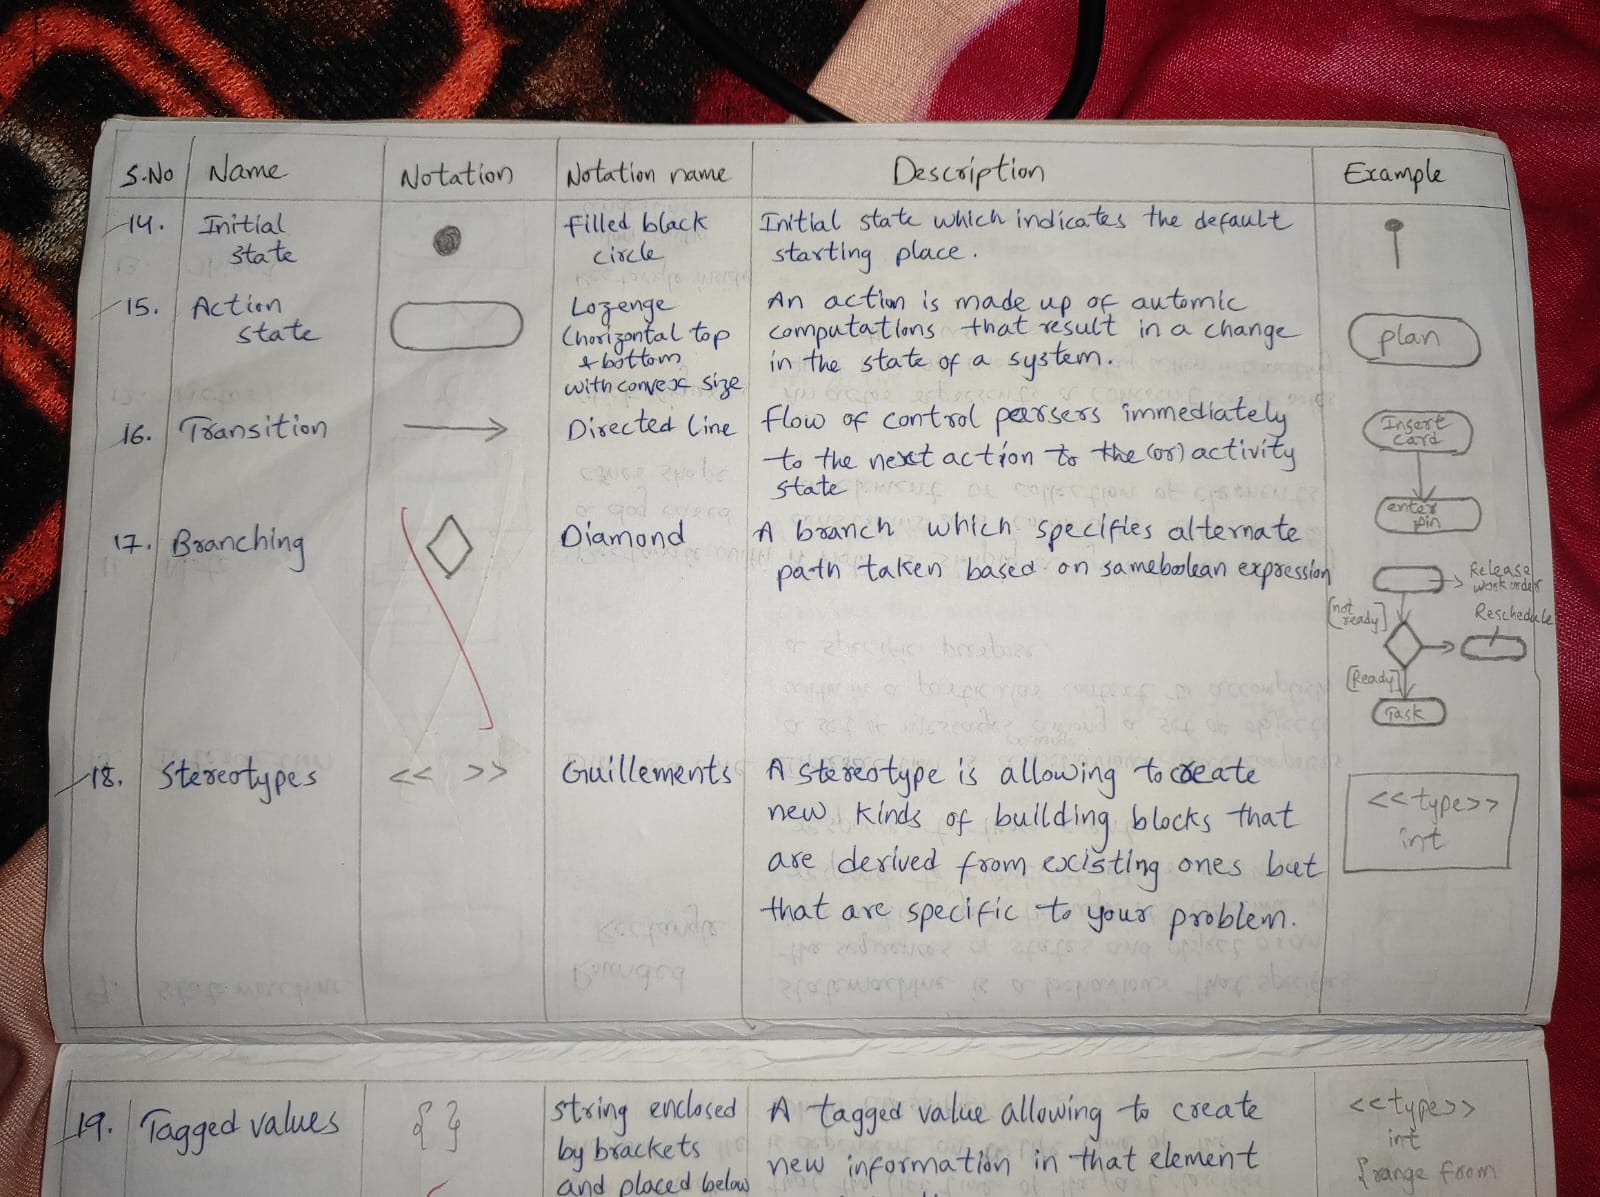 S.No Name Notation Notation name Description Example
14. Initial state filled black circle Initial state which indicates the default starting place.
15. Action state Lozenge (horizontal top & bottom with convex size An action is made up of automic computations that result in a change in the state of a system. plan
16. Transition Directed line flow of control pearsers immediately to the next action to the (or) activity state Insert card enter pin
17. Branching Diamond A branch which specifies alternate path taken based on sameboolean expression Release workorder [not ready] Reschedule [Ready] Task
18. Stereotypes << >> Guillements A stereotype is allowing to create new kinds of building blocks that are derived from existing ones but that are specific to your problem. <<type>> int
19. Tagged values { } string enclosed by brackets and placed below A tagged value allowing to create new information in that element <<type>> int {range from